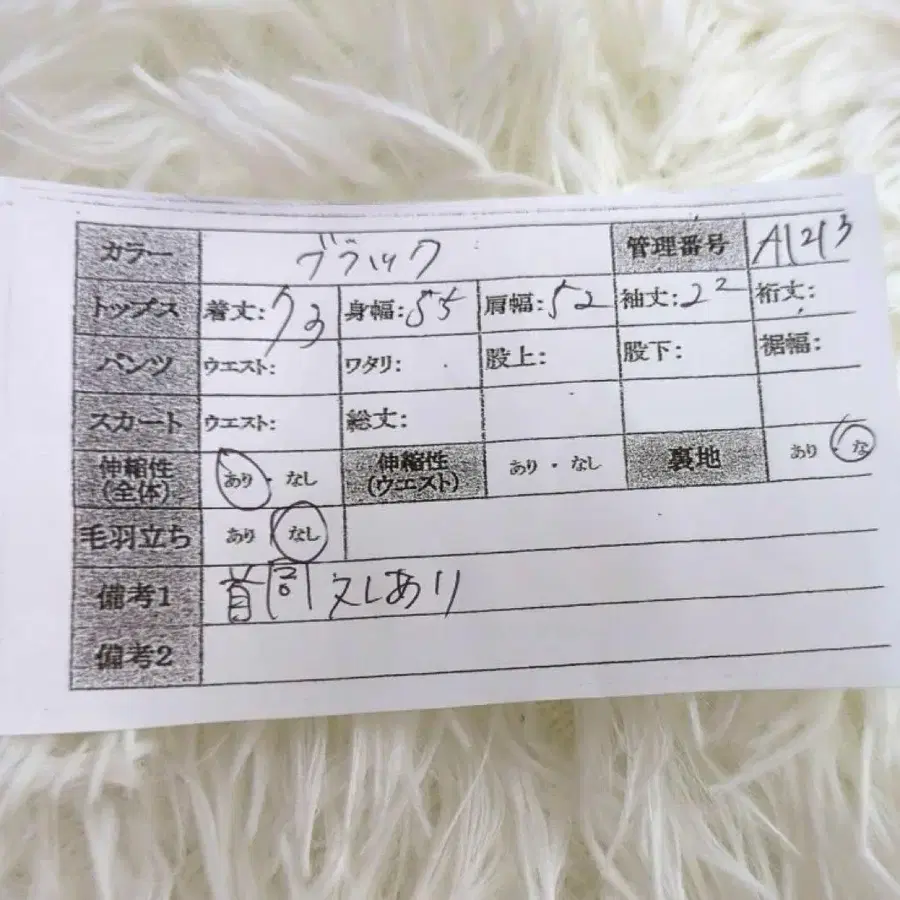 カラー ブラック 管理番号 A1213
トップス 着丈: 73 身幅: 55 肩幅: 52 袖丈: 22 裄丈:
パンツ ウエスト: ワタリ: 股上: 股下: 裾幅:
スカート ウエスト: 総丈:
伸縮性 (全体) あり・なし 伸縮性 (ウエスト) あり・なし 裏地 あり・な
毛羽立ち あり なし
備考1 首周 スレあり
備考2